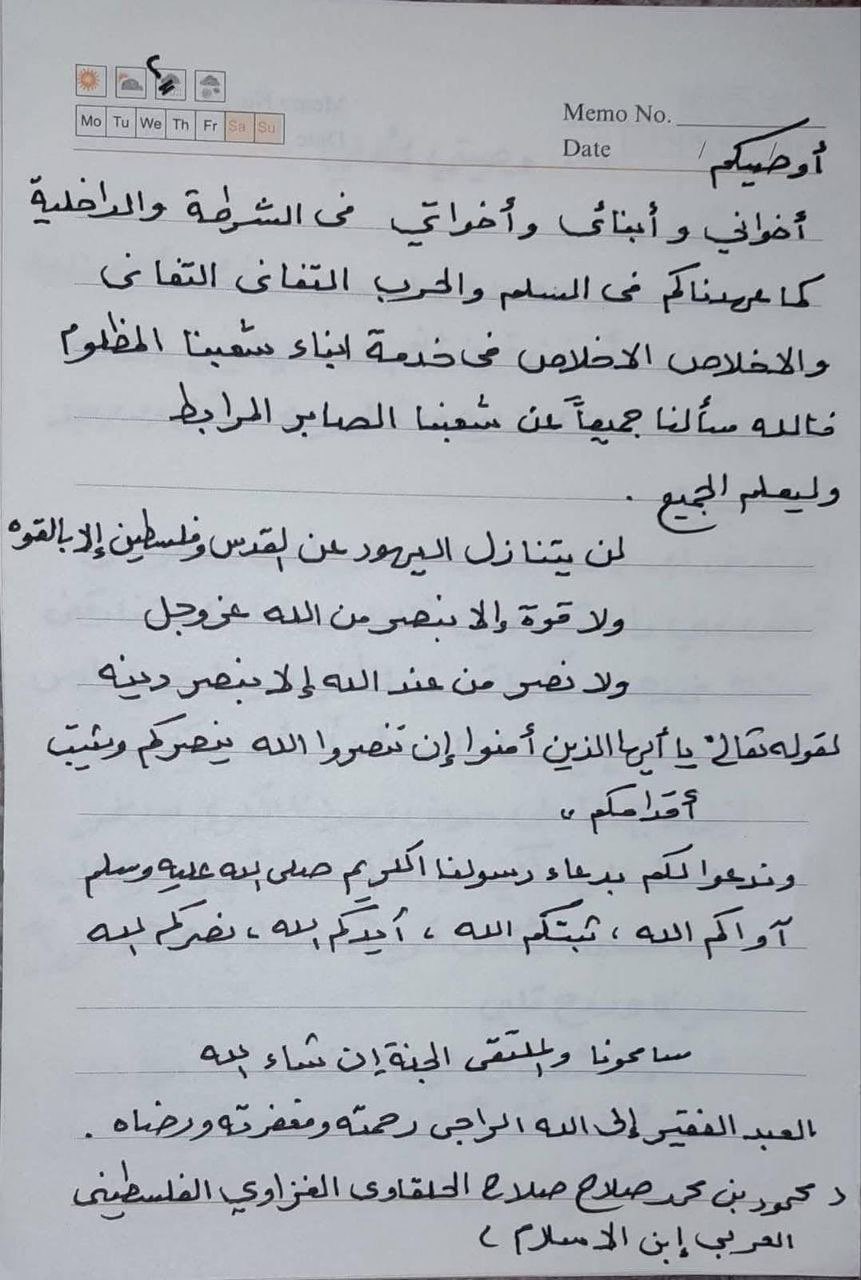 Mo Tu We Th Fr Sa Su
Memo No.
Date / /
أوصيكم
أخواني وأبنائى وأخواتي فى الشرطة والداخلية
كما عهدناكم فى السلم والحرب التفانى التفانى
والاخلاص الاخلاص فى خدمة ابناء شعبنا المظلوم
فالله سألنا جميعاً عن شعبنا الصابر المرابط
وليعلم الجميع .
لن يتنازل اليهود عن القدس وفلسطين إلا بالقوه
ولا قوة إلا بنصر من الله عز وجل
ولا نصر من عند الله إلا بنصر دينه
لقوله تعالى" يا أيها الذين أمنوا إن تنصروا الله ينصركم ويثبت
أقدامكم "
وندعوا لكم بدعاء رسولنا الكريم صلى الله عليه وسلم
آواكم الله ، ثبتكم الله ، أيدكم الله ، نصركم الله
سامحونا والملتقى الجنة إن شاء الله
العبد الفقير إلى الله الراجى رحمته ومغفرته ورضاه .
د محمود بن محمد صلاح صلاح الحلقاوى الغزاوي الفلسطينى
العربي إبن الاسلام